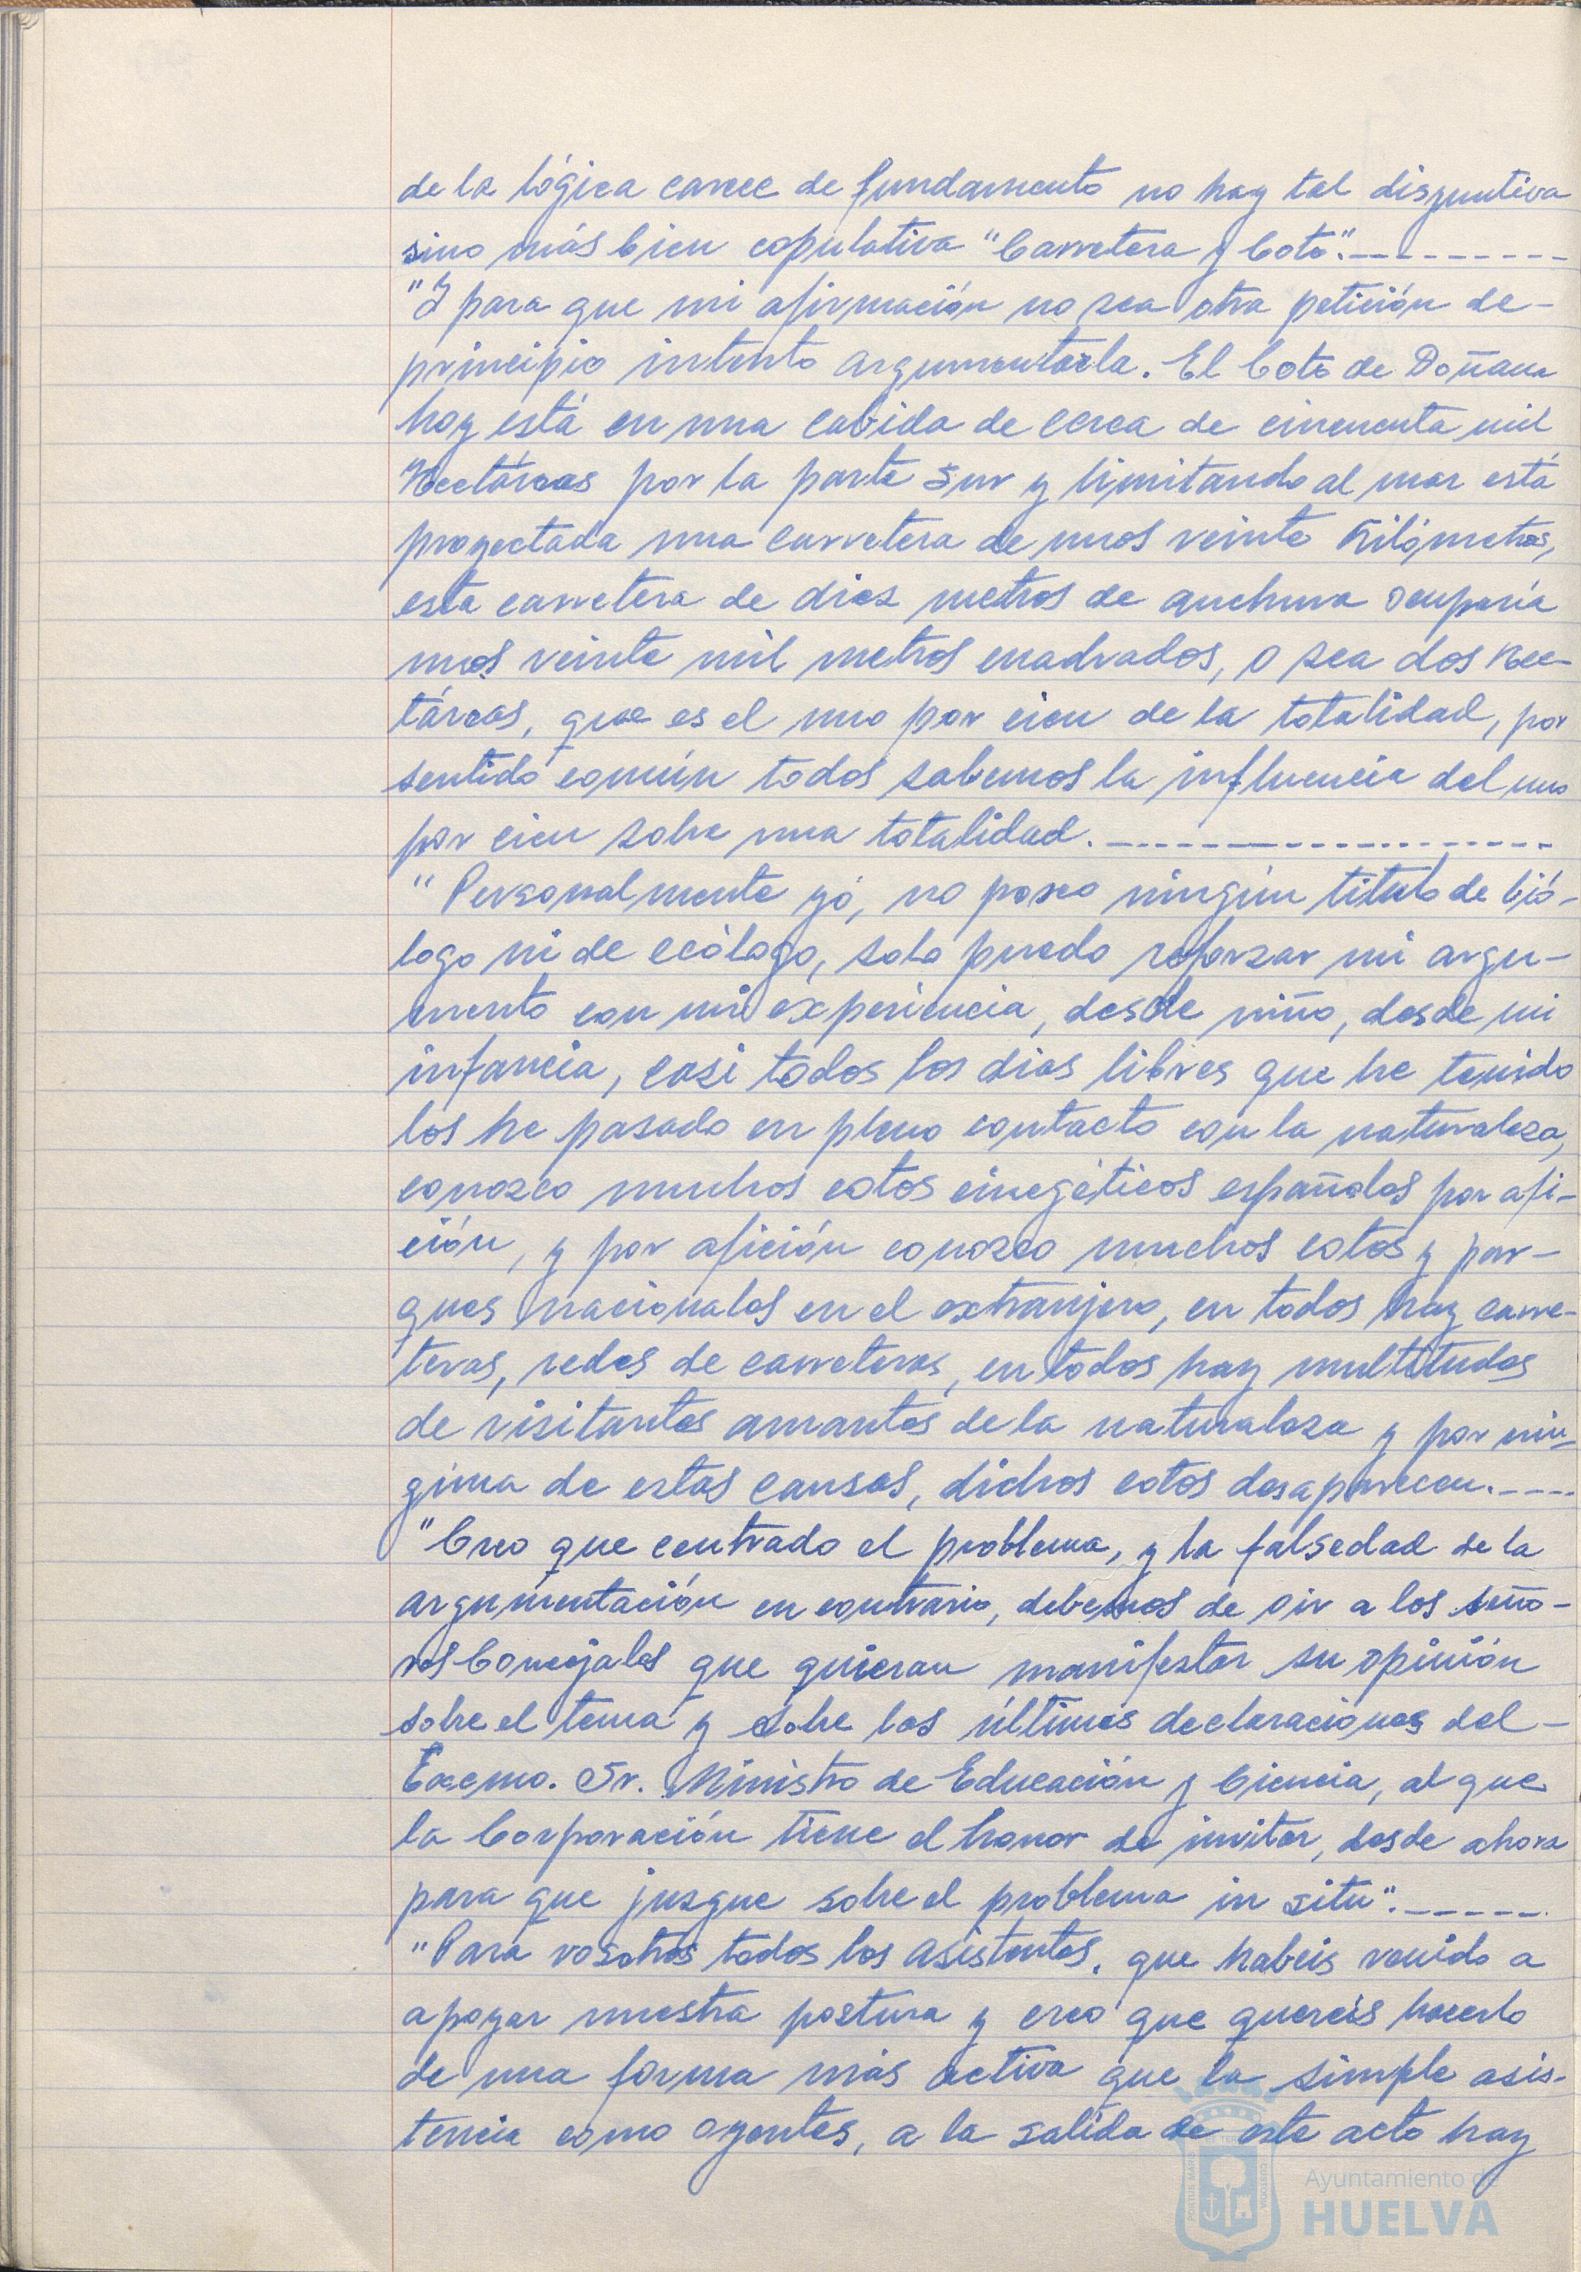 de la lógica carece de fundamento no hay tal disyuntiva
sino más bien copulativa "Carretera y Coto".---------
"Y para que mi afirmación no sea otra petición de-
principio intento argumentarla. El Coto de Doñana
hoy está en una cabida de cerca de cincuenta mil
Hectáreas por la parte Sur y limitando al mar está
proyectada una carretera de unos veinte Kilómetros,
esta carretera de diez metros de anchura ocuparía
unos veinte mil metros cuadrados, o sea dos Hec-
táreas, que es el uno por cien de la totalidad, por
sentido común todos sabemos la influencia del uno
por cien sobre una totalidad.--------------------
"Personalmente yó, no poseo ningún titulo de bió-
logo ni de ecólogo, solo puedo reforzar mi argu-
mento con mi experiencia, desde niño, desde mi
infancia, casi todos los dias libres que he tenido
los he pasado en pleno contacto con la naturaleza,
conozco muchos cotos cinegéticos españoles por afi-
ción, y por afición conozco muchos cotos y par-
ques nacionales en el extranjero, en todos hay carre-
teras, redes de carreteras, en todos hay multitudes
de visitantes amantes de la naturaleza y por nin-
guna de estas causas, dichos cotos desaparecen.----
"Creo que centrado el problema, y la falsedad de la
argumentación en contrario, debemos de oir a los seño-
res Concejales que quieran manifestar su opinión
sobre el tema y sobre las últimas declaraciones del-
Excmo. Sr. Ministro de Educación y Ciencia, al que
la Corporación tiene el honor de invitar, desde ahora
para que juzgue sobre el problema in situ".------
"Para vosotros todos los asistentes, que habeis venido a
apoyar nuestra postura y creo que quereis hacerlo
de una forma más activa que la simple asis-
tencia como oyentes, a la salida de este acto hay
Ayuntamiento de
HUELVA